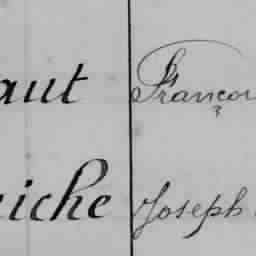 aut Françoi
eiche Joseph